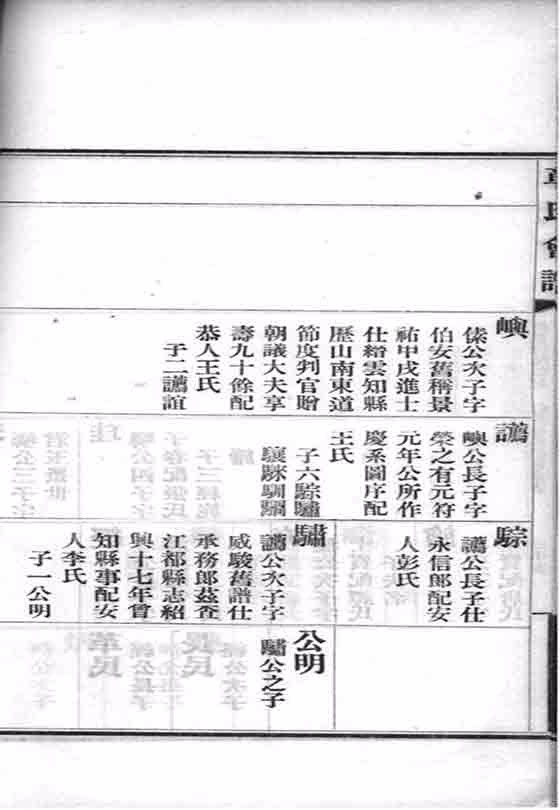 章氏會譜
嶼
傃公次子字
伯安舊稱景
祐甲戌進士
仕縉雲知縣
歷山南東道
節度判官贈
朝議大夫享
壽九十餘配
恭人王氏
子二讌誼
讌
嶼公長子字
榮之有元符
元年公所作
慶系圖序配
王氏
子六騌驌
騌
讌公長子仕
永信郎配安
人彭氏
驌
讌公次子字
威駿舊譜仕
承務郎茲查
江都縣志紹
興十七年曾
知縣事配安
人李氏
子一公明
公明
驌公之子